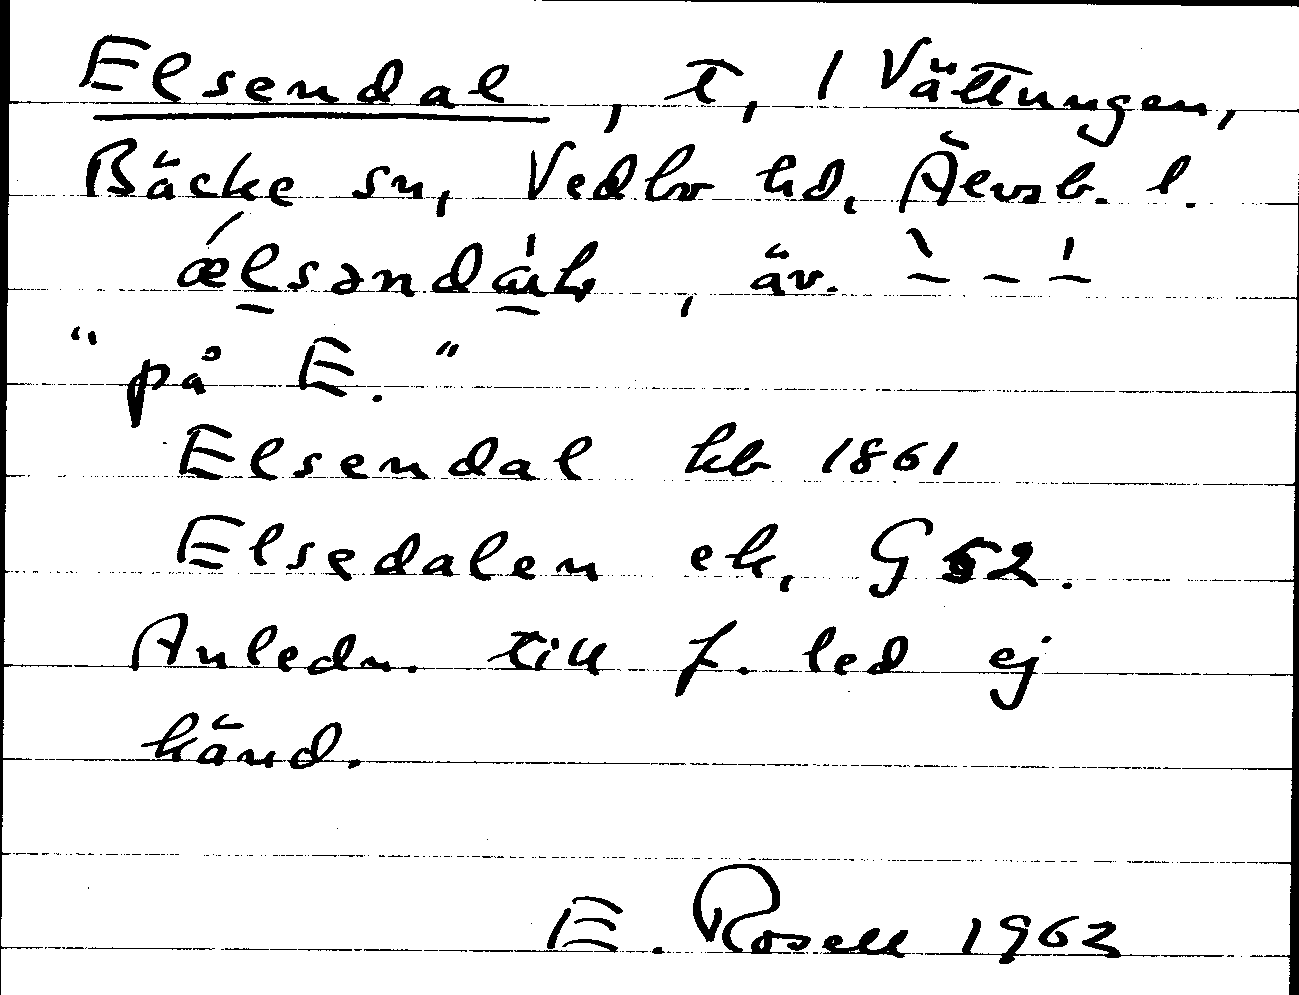 Elsendal, t, 1 Vättungen,
Bäcke sn, Vedbo hd, Älvsb. l.
ǽlsəndàh, äv. ̀– – –́
"på E."
Elsendal hb 1861
Elsedalen ek, G 52.
Anledn. till f. led ej
känd.
E. Rosell 1962